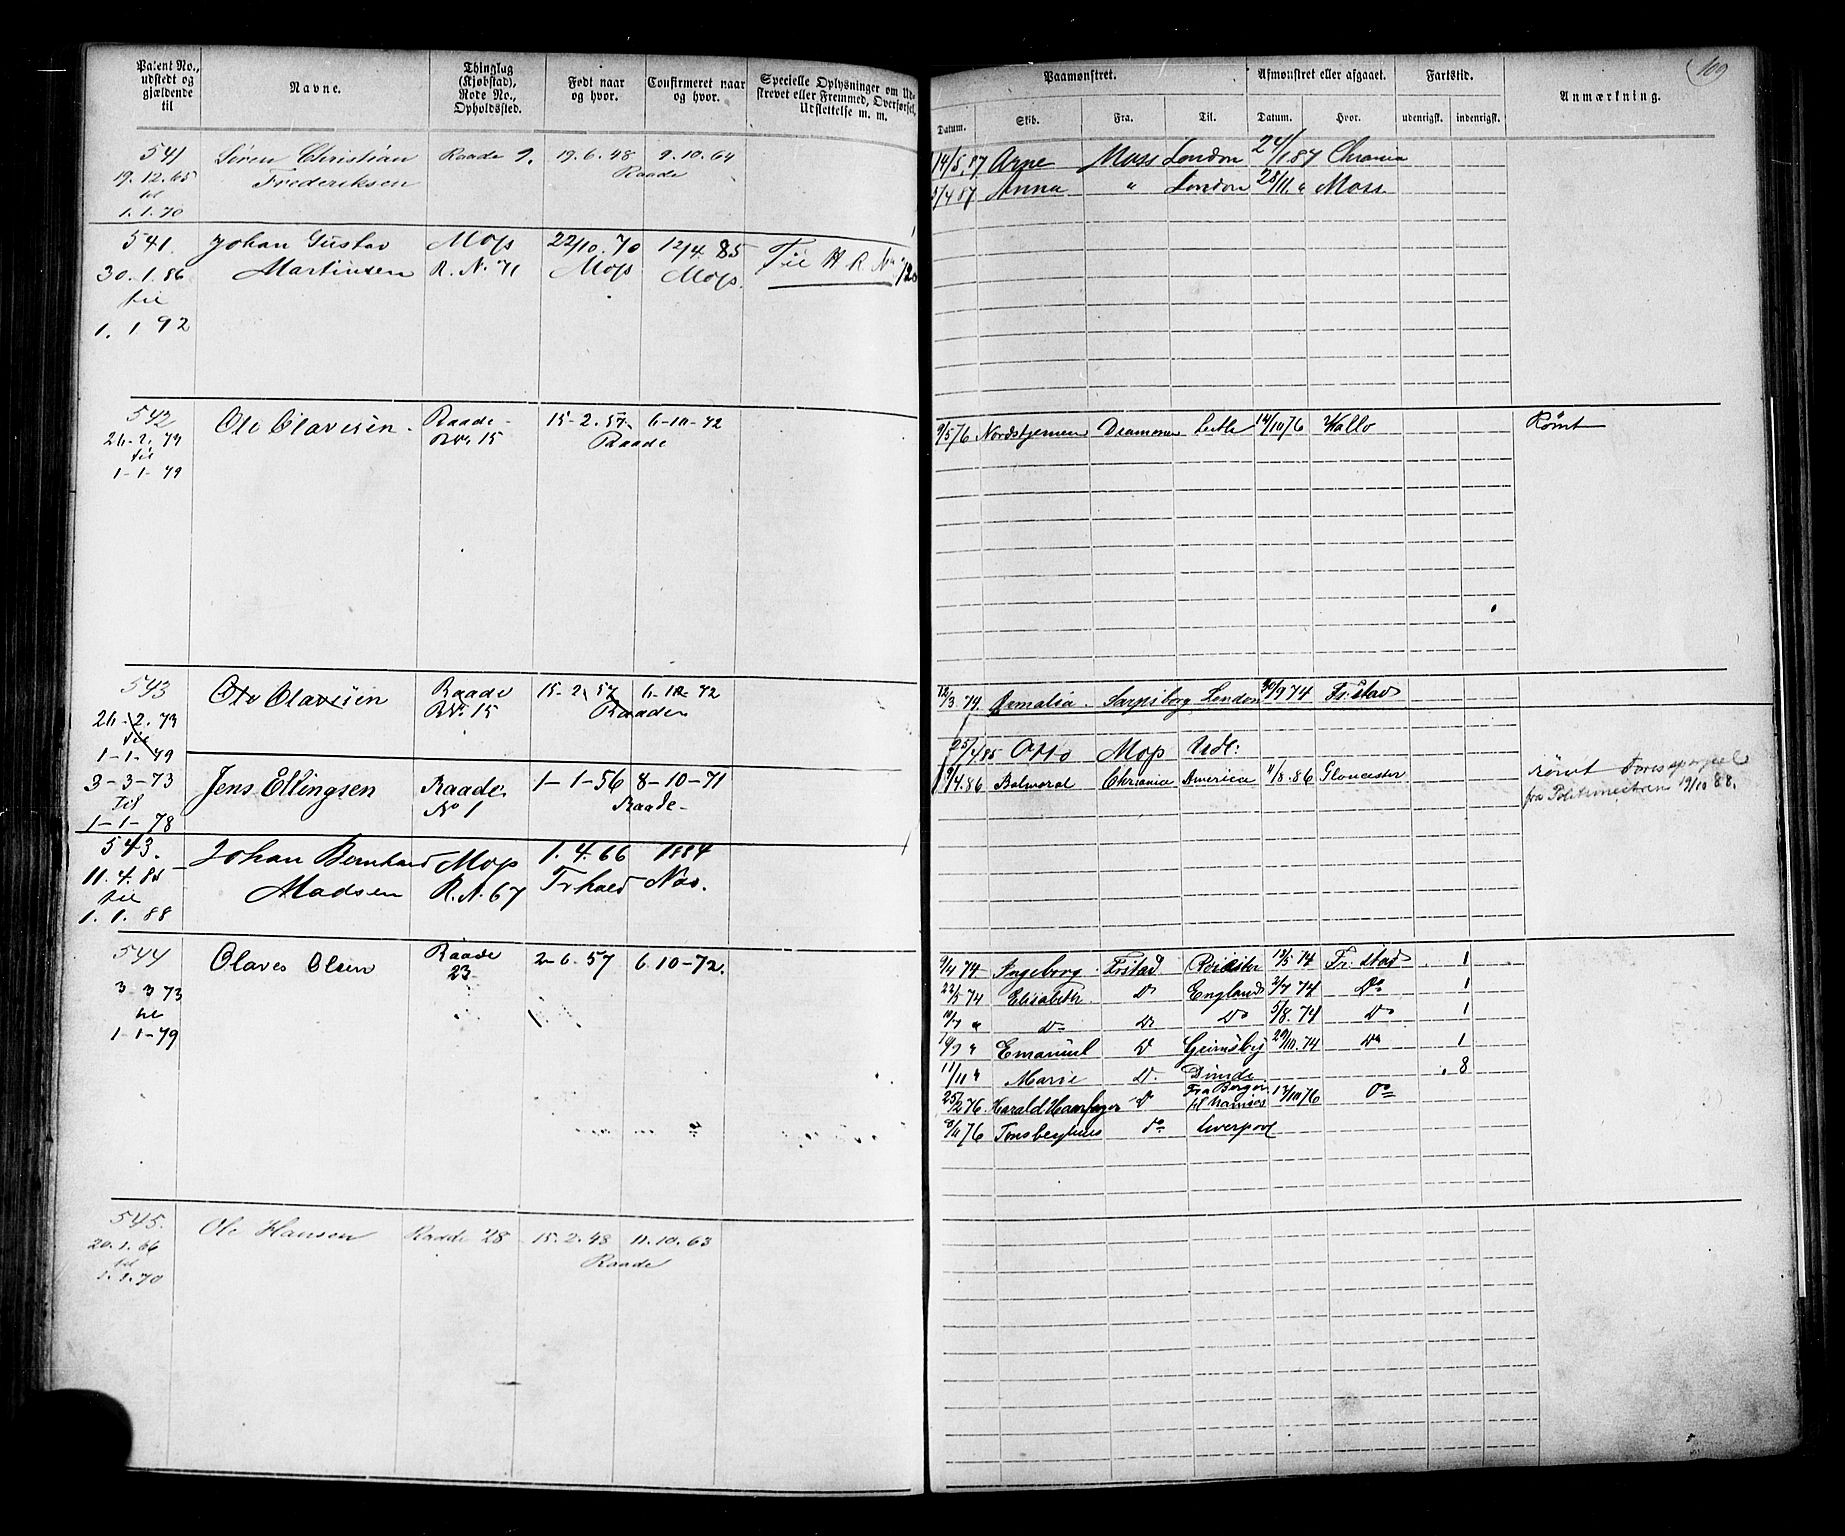 Patent No., udstedt og gjældende til
Navne.
Thinglag (Kjøbstad), Rode No., Opholdssted.
Født naar og hvor.
Confirmeret naar og hvor.
Specielle Oplysninger om Udskrevet eller Fremmed, Overførsel, Udslettelse m. m.
541 Søren Christian Raade 9. 19.6.48 9.10.64
19.12.65 Frederiksen Raade
til
1.1.70
541. Johan Gustav Moss 22/10.70 12/4.85 Til H R. No
30.1.86 Martinsen R.N.71 Moss Moss.
til
1.1.92
542 Ole Olavesen. Raade- 15-2.57. 6-10-72
26-2.74 R.No.15 Raade
til
1-1-79
543 Ole Olavesen Raade 15-2.57 6-10-72
26-2.73 R.No.15 Raade
til
1-1-79
3-3-73 Jens Ellingsen Raade. 1-1-56 8-10-71
Til No 1 Raade-
1-1-78
543. Johan Bernhard Moss 1.4.66 1884
11.4.85 Madsen R.N.67 Fr.hald Nov.
til
1.1.88
544 Olaves Olsen Raade 2-6.57 6.10-72.
3-3 73 23
til
1-1-79
545. Ole Hansen Raade 28 15.2.48 11.10.63
20.1.66 Raade
til
1.1.70
109
Paamønstret. Afmønstret eller afgaaet. Fartstid. Anmærkning.
Datum. Skib. Fra. Til. Datum. Hvor. udenrigsk. indenrigsk.
14/5.87 Arne Moss London 24/1 87 Chrania
5/4 87 Anna " London 28/11. " Moss
9/5 76 Nordstjernen Drammen Leith 14/10 76 Kallo Rømt
12/3.74. Amalia. Sarpsborg London 30/9 74 Fr:stad
25/4 85 Otto Moss Udl:
9/4.86 Balmoral Chrania America 11/8.86 Gloucester rømt
fra Politimesteren 19/10 88.
9/4 74 Ingeborg Frstad 19/5 74 Fr:stad 1
22/5 74 Elisabeth Do England 2/7 74 Do 1
10/7 " Do Do Do 5/8.74 Do 1
10/9 " Emanuel Do Grimsby 20/10.74 Do 1
11/11 " Marie Do. 8
25/2 76. Harald Haarfager Do Fra Bergen 13/10 76 Do
8/11 76 Tønsberghus do Liverpool